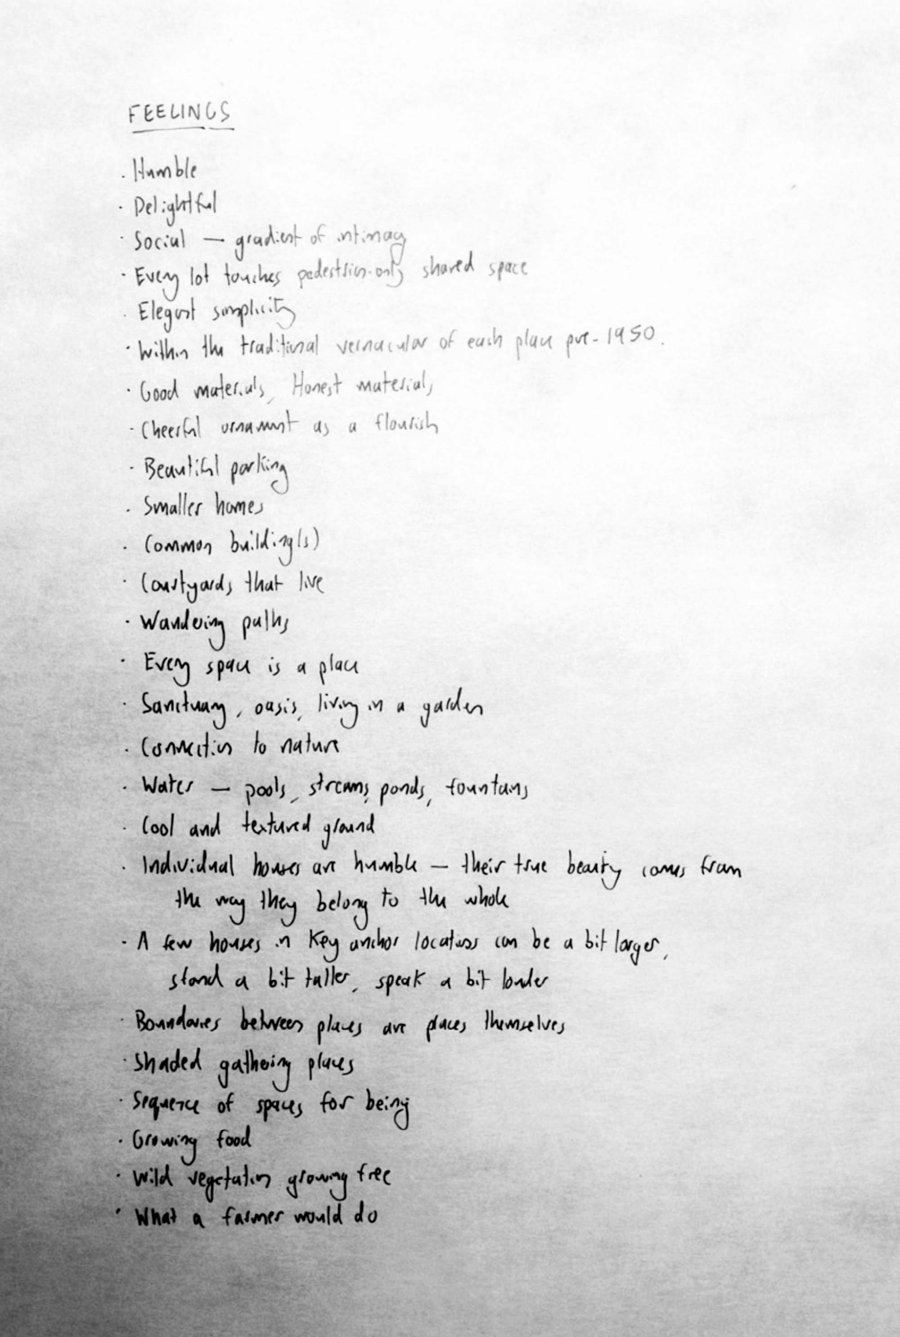 FEELINGS
· Humble
· Delightful
· Social — gradient of intimacy
· Every lot touches pedestrian-only shared space
· Elegant simplicity
· Within the traditional vernacular of each place pre-1950.
· Good materials, Honest materials
· Cheerful ornament as a flourish
· Beautiful parking
· Smaller homes
· Common building(s)
· Courtyards that live
· Wandering paths
· Every space is a place
· Sanctuary, oasis, living in a garden
· Connection to nature
· Water — pools, streams, ponds, fountains
· Cool and textured ground
· Individual houses are humble — their true beauty comes from
the way they belong to the whole
· A few houses in key anchor locations can be a bit larger,
stand a bit taller, speak a bit louder
· Boundaries between places are places themselves
· Shaded gathering places
· Sequence of spaces for being
· Growing food
· Wild vegetation growing free
· What a farmer would do